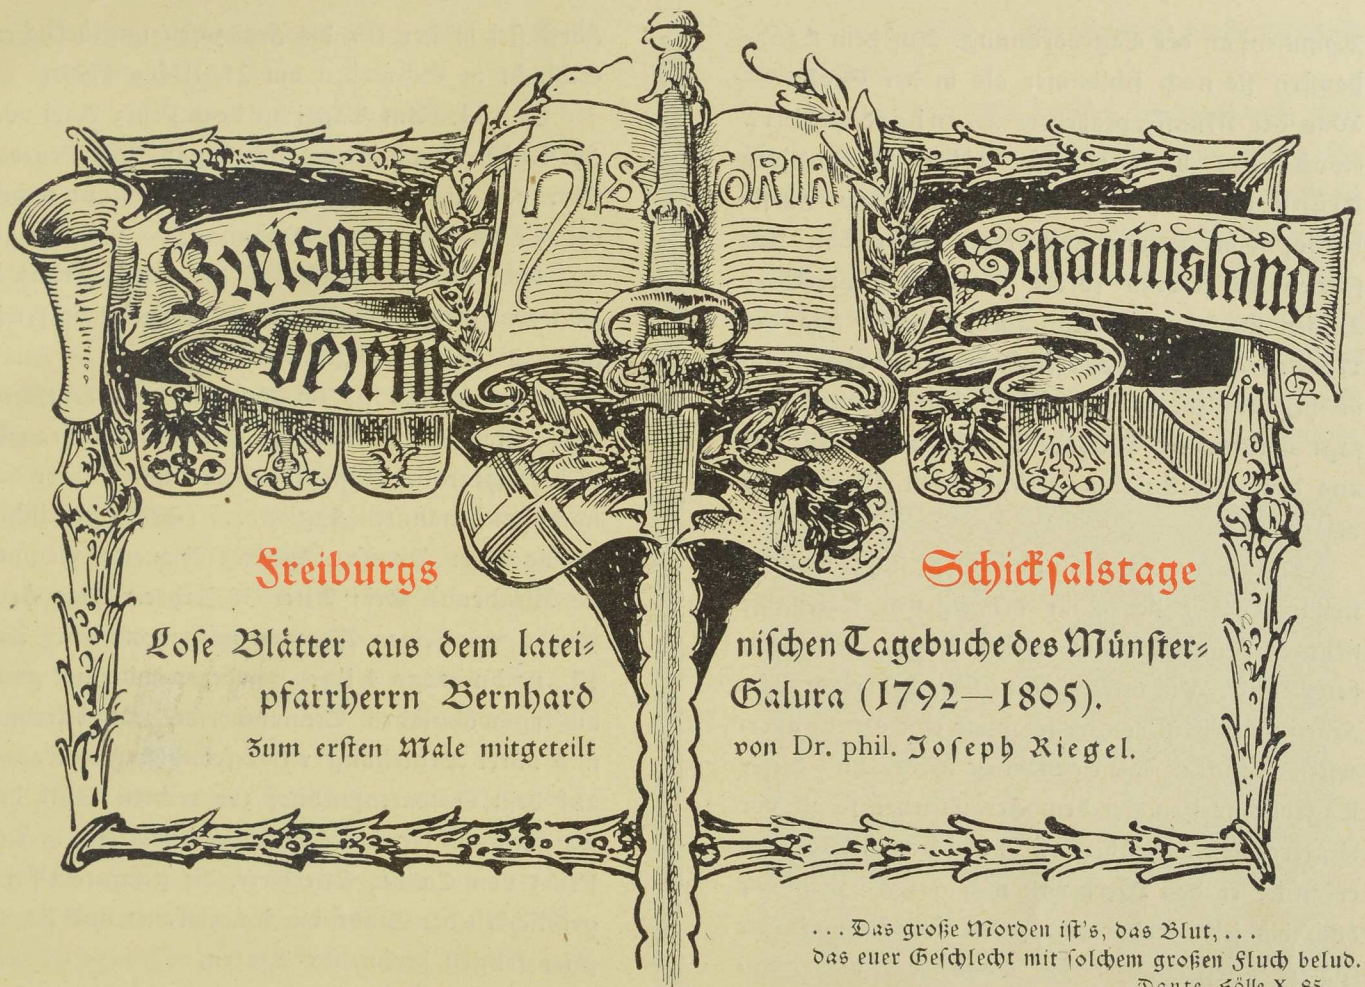 HISTORIA
Breisgau
Verein
Schauinsland
Freiburgs Schicksalstage
Lose Blätter aus dem lateinischen Tagebuche des Münster-
pfarrherrn Bernhard Galura (1792—1805).
Zum ersten Male mitgeteilt von Dr. phil. Joseph Riegel.
... Das große Morden ist's, das Blut, ...
das euer Geschlecht mit solchem großen Fluch belud.
Dante, Hölle X, 85